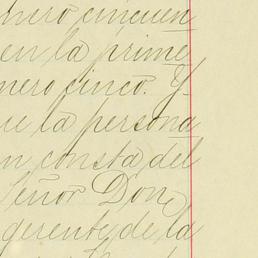 nero cincuen
en la prime
nero cinco. Y
ue la persona
n consta del
Señor Don
gerente de la